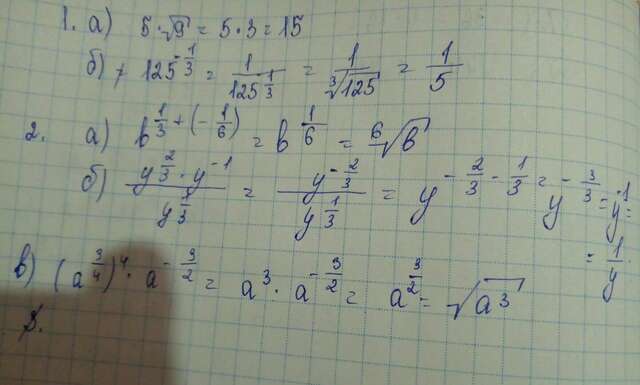 1. а) 5·√9 = 5·3 = 15
б) 125^(-1/3) = 1/125^(1/3) = 1/∛125 = 1/5
2. а) b^(1/3+(-1/6)) = b^(1/6) = ⁶√b
б) (y^(2/3)·y^(-1))/y^(1/3) = y^(-2/3)/y^(1/3) = y^(-2/3-1/3) = y^(-3/3) = y^(-1) =
= 1/y
в) (a^(3/4))^4·a^(-3/2) = a^3·a^(-3/2) = a^(3/2) = √(a^3)
3.